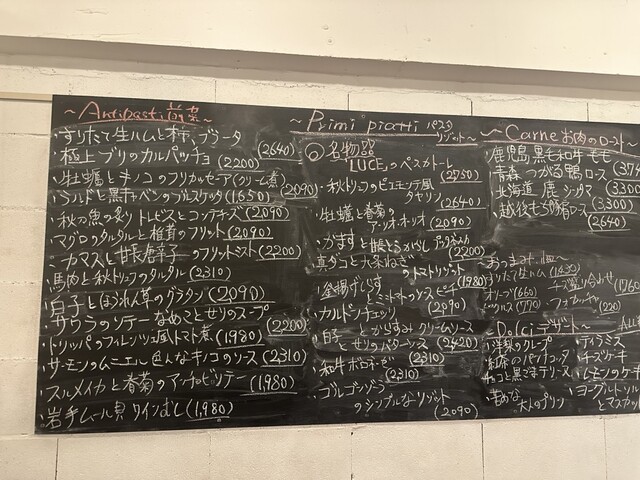 ~Antipasti 前菜~
・すりたて生ハムと柿、ブラータ (2640)
・極上ブリのカルパッチョ (2200)
・牡蠣とキノコのフリカッセーア(クリーム煮) (2090)
・ラルドと黒キャベツのブルスケッタ (1650)
・秋刀魚の炙り トレビスとコンテチーズ (2090)
・マグロのタルタルと椎茸のフリット (2090)
・カマスと甘長唐辛子のフリットミスト (2200)
・馬肉と秋トリュフのタルタル (2310)
・白子とほうれん草のグラタン (2090)
・サワラのソテー なめことせりのスープ (2200)
・トリッパのフィレンツェ風トマト煮 (1,980)
・サーモンのムニエル 色んなキノコのソース (2,310)
・スルメイカと春菊のアーリオビソテー (1,980)
・岩手ムール貝 ワインむし (1,980)
~Primi piatti パスタ リゾット~
◎名物
"LUCE"のペスカトーレ (2750)
・秋トリュフのピエモンテ風 タヤリン (2640)
・牡蠣と春菊 アーリオ・オーリオ (2090)
・かますと甘長とうがらし (2200)
・真ダコと九条ねぎのトマトリゾット (1980)
・釜揚げしらすとミニトマトのスパゲッティ (2090)
・カルボナーラ
・白子とからすみ クリームソース
とせりのパスタ (2420)
・和牛ボロネーゼ (2310)
・ゴルゴンゾーラ
のシンプルなリゾット (2090)
~Carne お肉のロースト~
鹿児島 黒毛和牛 モモ
青森 つがる鴨 ロース
北海道 鹿 シンタマ (3300)
・越後もち豚肩ロース (2640)
おつまみ
すりたて生ハム (1430)
チーズ盛り合わせ (1760
オリーブ (660)
フォカッチャ (220)
ピクルス (770)
~Dolci デザート~
・洋梨のクレープ
・紅茶のパンナコッタ
・チョコと黒ごまテリーヌ
・苦めな大人のプリン
・ティラミス
・チーズケーキ
・レモンのケーキ
・ヨーグルト
とマスカット